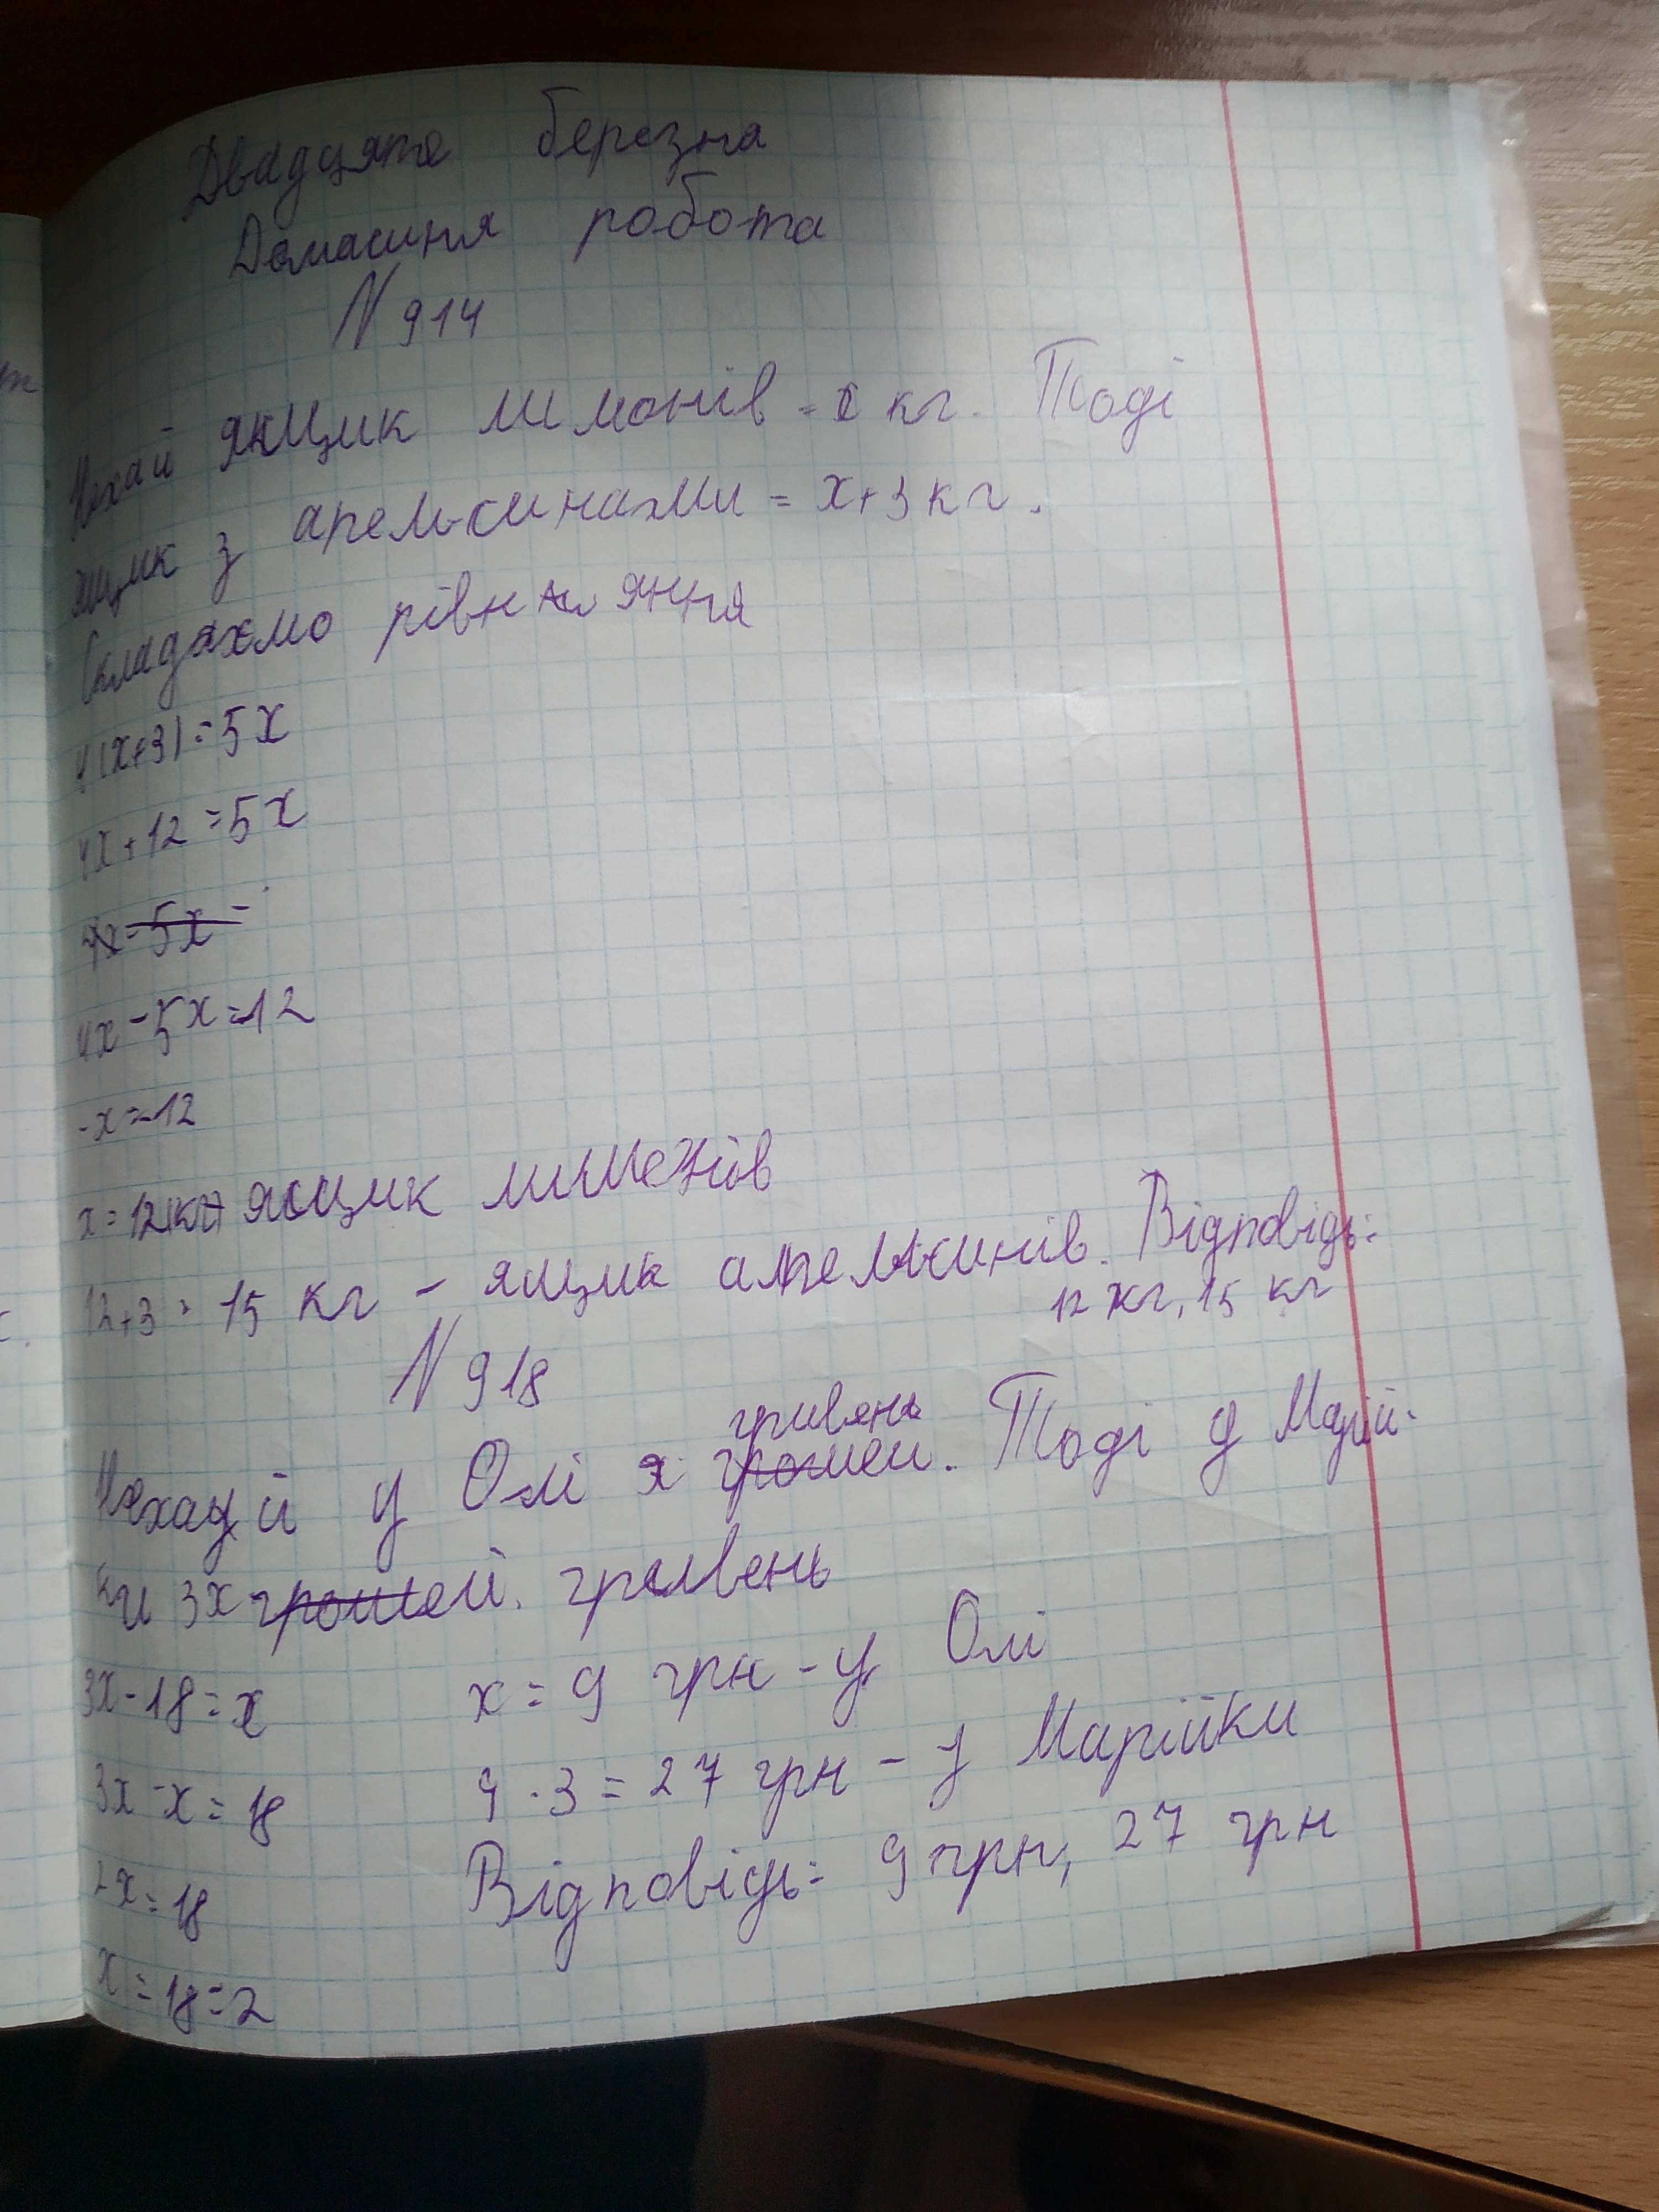 Двадцяте березна
Домашня робота
N 914
Нехай ящик лимонів = x кг. Тоді
ящик з апельсинами = x+3 кг.
Складахмо рівняння
4(x+3)=5x
4x+12=5x
4x-5x=
4x-5x=-12
-x=-12
x=12(кг) ящик лимонів
12+3=15 кг - ящик апельсинів. Відповідь:
12 кг, 15 кг
N 918
гривень
Нехай у Олі x грошей. Тоді у Марій-
ки 3x грошей. гривень
3x-18=x
3x-x=18
2x=18
x=18:2
x=9 грн - у Олі
9·3=27 грн - у Марійки
Відповідь: 9 грн, 27 грн